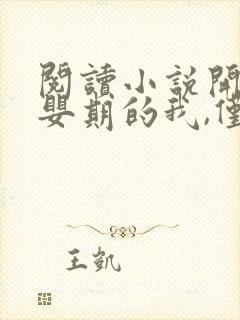 閱讀小說開
嬰期的我,僅
王凱